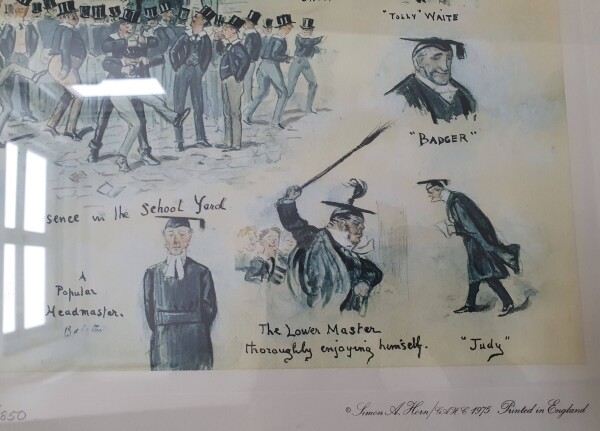 "TOLLY" WAITE
"BADGER"
sence in the School Yard
A
Popular
Headmaster.
The Lower Master
thoroughly enjoying himself.
"Judy"
/850
© Simon A. Horn/GAHC 1975 Printed in England